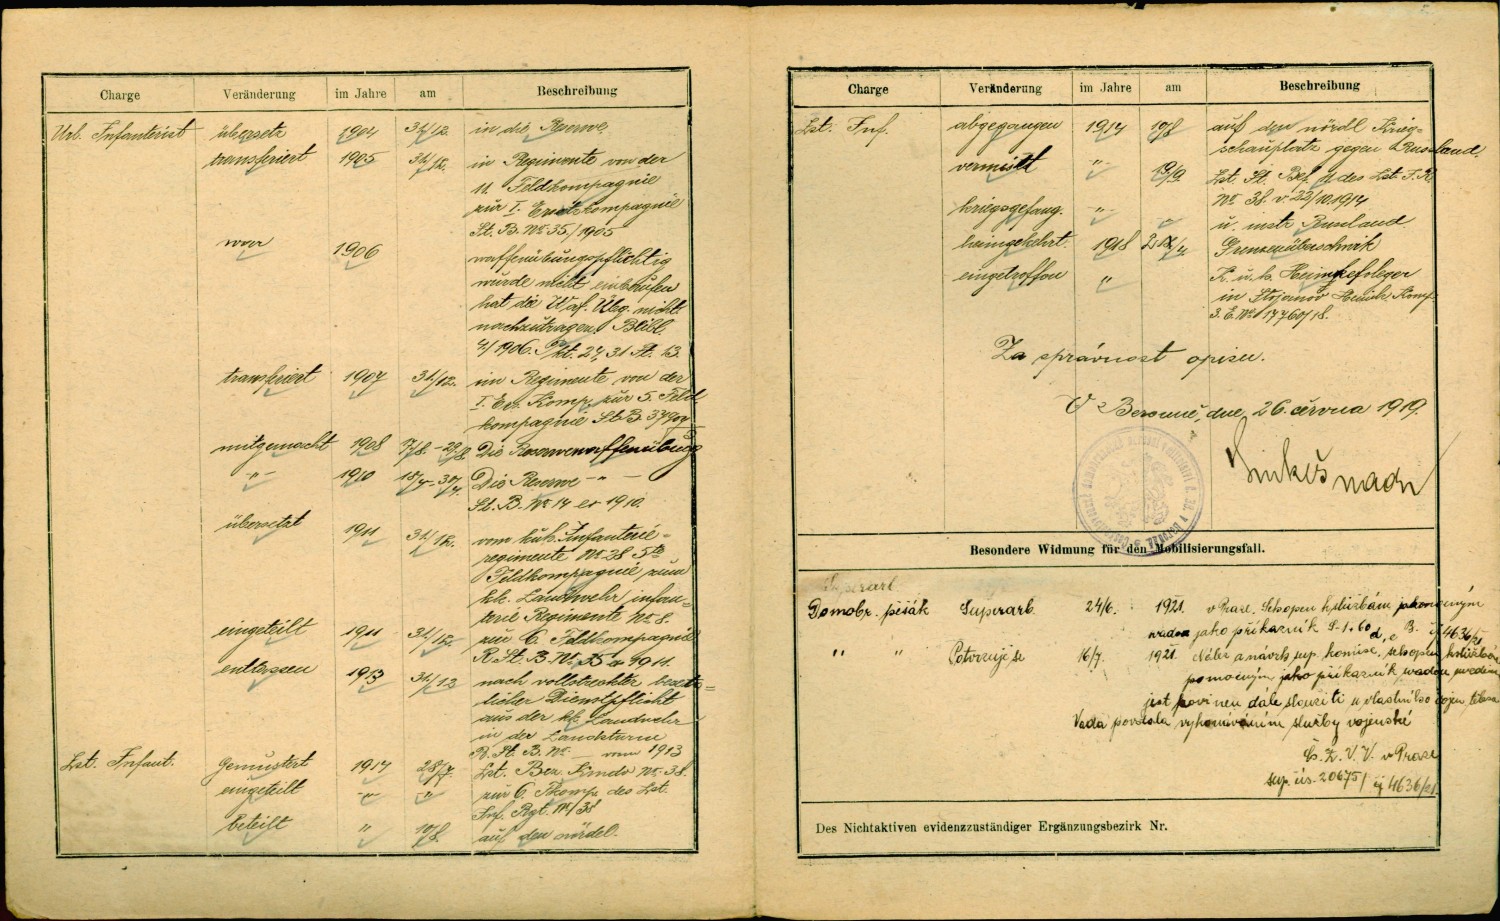 Charge Veränderung im Jahre am Beschreibung
Url. Infanterist übersetz 1904 31/12. in die Reserve.
transferiert 1905 31/12. in Regimente von der
11. Feldkompagnie
zur I. Ersatzkompagnie
St. B. No 35./1905
war 1906 waffenübungspflichtig
wurde nicht einberufen
hat die Waf. Übg. nicht
nachzutragen. Blibl.
4/1906. Pkt. 27, 31 St. 13.
transferiert 1907 31/12. im Regimente von der
I. Ers. Komp. zur 5. Feld
kompagnie St. B.
mitgemacht 1908 17/8.-29/8. Die Reservewaffenübung
-"- 1910 18/4-30/4. Die Reserve -"-
St. B. No 14 ex 1910.
übersetzt 1911 31/12. vom kuk. Infanterie-
regimente No 28 5te
Feldkompagnie zum
kk. Landwehr infan-
terie Regimente No 8.
eingeteilt 1911 31/12. zur 6. Feldkompagnie
R. St. B. No 35 ex 1911.
entlassen 1913 31/12 nach vollstreckter
licher Dienstpflicht
aus der kk. Landwehr
in der Landsturm
R. St. B. No — vom 1913
Lst. Infant. Gemustert 1914 28/7. Lst. Bez. Kmdo No 38.
eingeteilt -"- " zur 6. Fkomp. des Lst.
Inf. Rgt. No/38
beteilt " 10/8. auf den nördel.
Charge Veränderung im Jahre am Beschreibung
Lst. Inf. abgegangen 1914 10/8 auf den nördl Krieg-
schauplatz gegen Russland.
vermisst " 19/9 Lst. St. Bef. des Lst. I. R.
No 38. v. 22/10.1914
kriegsgefang. " " u. instr Russland.
heimgekehrt. 1918 /4. Grenzenüberschrak
eingetroffen " K. u. k. Heimkefoleger
in Stojanov Komp.
3. E. No 17760/18.
Za správnost opisu.
V Berouně, dne 26. června 1919.
Besondere Widmung für den Mobilisierungsfall.
Superarb
Domobr. pěšák Superarb. 24/6. 1921. v Praze. Schopen k službám pomocným
vadou jako příkazník
" " Potvrzuje se 16/7. 1921. Nález a návrh sup. komise, schopen k službám
pomocným jako příkazník vadou
jest povinen dále sloužiti u vlastního vojen. tělesa
Vada povstala vykonáváním služby vojenské
Čs. Z. V. V. v Praze
sup. čís. 20675/ ij 4636/21
Des Nichtaktiven evidenzzuständiger Ergänzungsbezirk Nr.